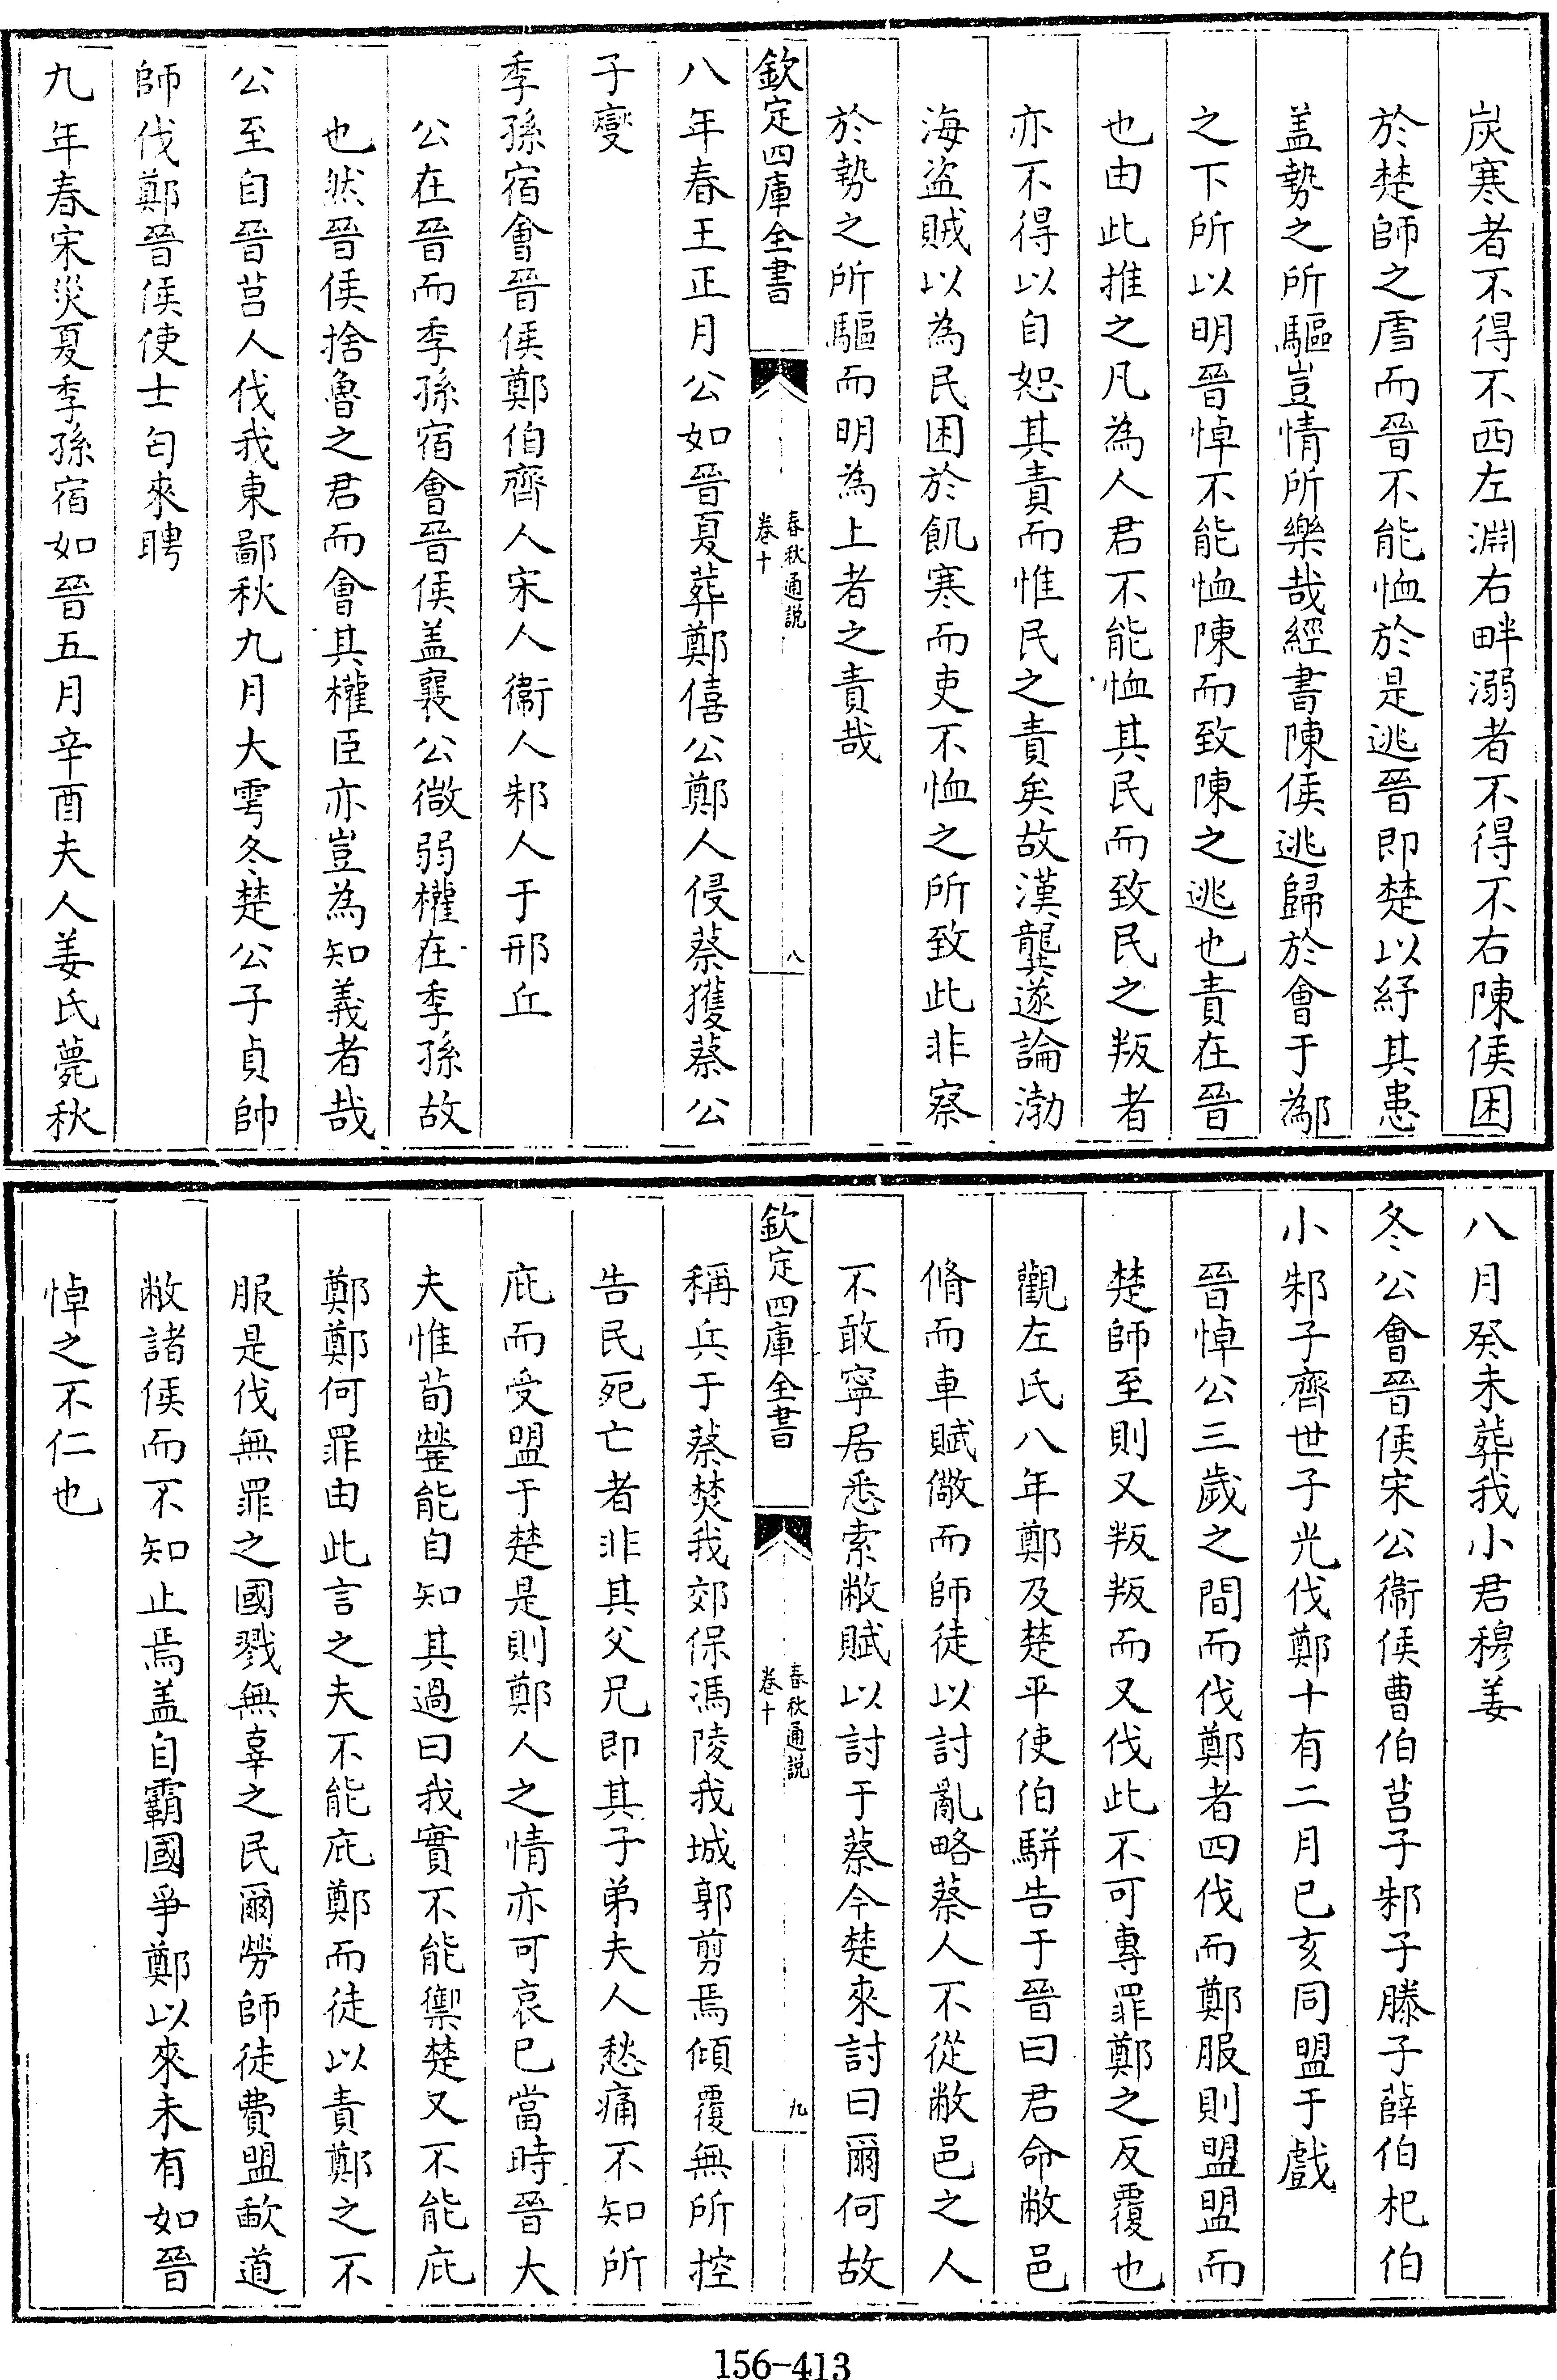 炭寒者不得不西左淵右畔溺者不得不右陳侯困
於楚師之虐而晉不能恤於是逃晉即楚以紓其患
盖勢之所驅豈情所樂哉經書陳侯逃歸於會于鄬
之下所以明晉悼不能恤陳而致陳之逃也責在晉
也由此推之凡為人君不能恤其民而致民之叛者
亦不得以自恕其責而惟民之責矣故漢龔遂論渤
海盗賊以為民困於飢寒而吏不恤之所致此非察
於勢之所驅而明為上者之責哉
欽定四庫全書
春秋通説
卷十
八
八年春王正月公如晉夏葬鄭僖公鄭人侵蔡獲蔡公
子燮
季孫宿會晉侯鄭伯齊人宋人衞人邾人于邢丘
公在晉而季孫宿會晉侯盖襄公微弱權在季孫故
也然晉侯捨魯之君而會其權臣亦豈為知義者哉
公至自晉莒人伐我東鄙秋九月大雩冬楚公子貞帥
師伐鄭晉侯使士匄來聘
九年春宋災夏季孫宿如晉五月辛酉夫人姜氏薨秋
八月癸未葬我小君穆姜
冬公會晉侯宋公衞侯曹伯莒子邾子滕子薛伯杞伯
小邾子齊世子光伐鄭十有二月已亥同盟于戲
晉悼公三歲之間而伐鄭者四伐而鄭服則盟盟而
楚師至則又叛叛而又伐此不可專罪鄭之反覆也
觀左氏八年鄭及楚平使伯駢告于晉曰君命敝邑
脩而車賦儆而師徒以討亂略蔡人不從敝邑之人
不敢寧居悉索敝賦以討于蔡今楚來討曰爾何故
欽定四庫全書
春秋通説
卷十
九
稱兵于蔡焚我郊保馮陵我城郭剪焉傾覆無所控
告民死亡者非其父兄即其子弟夫人愁痛不知所
庇而受盟于楚是則鄭人之情亦可哀已當時晉大
夫惟荀罃能自知其過曰我實不能禦楚又不能庇
鄭鄭何罪由此言之夫不能庇鄭而徒以責鄭之不
服是伐無罪之國戮無辜之民爾勞師徒費盟歃道
敝諸侯而不知止焉盖自霸國爭鄭以來未有如晉
悼之不仁也
156-413